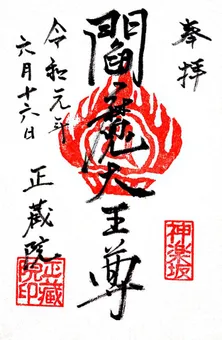 奉拝
閻魔大王尊
令和元年
六月十六日
正蔵院
神楽坂
正蔵
院印